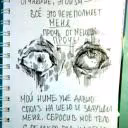 ОТЧАЯНИЕ, ЭГОИЗМ —
ВСЁ ЭТО ПЕРЕПОЛНЯЕТ
МЕНЯ
ПРОЧЬ ОТ МЕНЯ
ПРОЧЬ!
МОЙ НИМБ УЖЕ ДАВНО
СПОЛЗ НА ШЕЮ И ЗАДУШИЛ
МЕНЯ. СБРОСИЛ МОЁ ТЕЛО